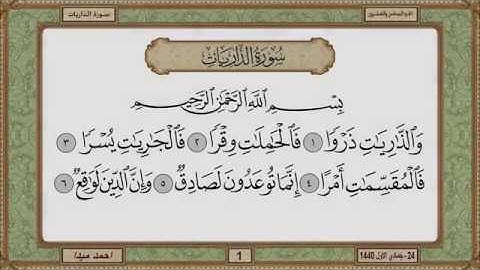 سورة الذاريات
الجزء السادس والعشرون
سُورَةُ الذَّارِيَاتِ
بِسْمِ اللَّهِ الرَّحْمَٰنِ الرَّحِيمِ
وَالذَّارِيَاتِ ذَرْوًا ١ فَالْحَامِلَاتِ وِقْرًا ٢ فَالْجَارِيَاتِ يُسْرًا ٣
فَالْمُقَسِّمَاتِ أَمْرًا ٤ إِنَّمَا تُوعَدُونَ لَصَادِقٌ ٥ وَإِنَّ الدِّينَ لَوَاقِعٌ ٦
24- جمادي الأول 1440
1
أحمد ميدا